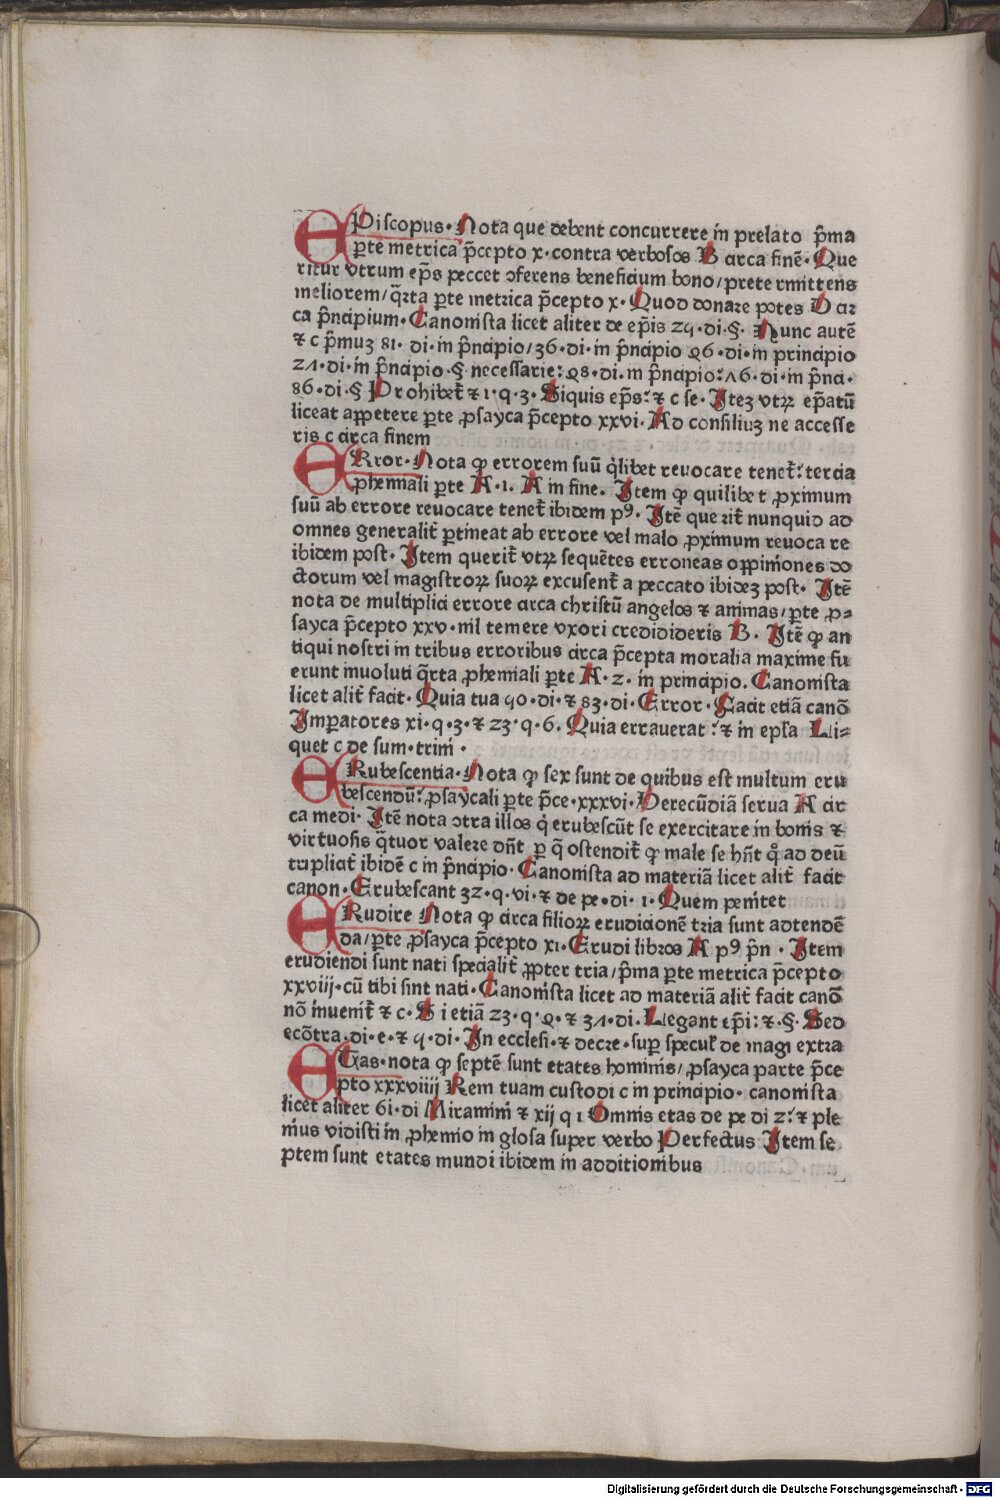 EPiscopus. Nota que debent concurrere in prelato p̄ma
ꝑte metrica p̄cepto x. contra verbosos B arca finē. Que
ritur vtrum ep̄s peccet ɔferens beneficium bono/pretermittens
meliorem/q̄rta ꝑte metrica p̄cepto x. Quod donare potes D ar
ca p̄ncipium. Canonista licet aliter de ep̄is 24.di.§. Nunc autē
⁊ c p̄muʒ 81. di. in p̄ncipio/36.di. in p̄ncipio 96.di.in principio
21.di.in p̄ncipio.§ necessarie: 98.di.in p̄ncipio: 16.di.in p̄nci.
86.di.§ Prohibet̄ ⁊ 1.q.3. Siquis ep̄s: ⁊ c se. Iteʒ vtꝝ ep̄atū
liceat appetere ꝑte ꝓsayca p̄cepto xxvi. Ad consiliuʒ ne accesse
ris c circa finem
ERror. Nota ꝙ errorem suū q̄libet reuocare tenet̄: tercia
ꝓhemiali ꝑte A.1. A in fine. Item ꝙ quilibet ꝓximum
suū ab errore reuocare tenet̄ ibidem pꝰ. Itē querit̄ nunquid ad
omnes generalit̄ ꝑtineat ab errore vel malo ꝓximum reuocare
ibidem post. Item querit̄ vtꝝ sequētes erroneas oppiniones do
ctorum vel magistroꝝ suoꝝ excusent̄ a peccato ibideʒ post. Itē
nota de multiplici errore circa christū angelos ⁊ animas/ꝑte ꝓ-
sayca p̄cepto xxv. nil temere vxori credidideris B. Itē ꝙ an
tiqui nostri in tribus erroribus circa p̄cepta moralia maxime fu
erunt inuoluti q̄rta ꝓhemiali ꝑte A.2. in principio. Canonista
licet alit̄ facit. Quia tua 40.di.⁊ 83.di. Error. Facit etiā canō
Imꝑatores xi.q.3.⁊ 23.q.6. Quia errauerat: ⁊ in ep̄la Li-
quet c de sum.trini.
ERubescentia. Nota ꝙ sex sunt de quibus est multum eru
bescendū: ꝓsaycali ꝑte p̄ce.xxxvi. Verecūdiā serua A cir
ca medi. Itē nota ɔtra illos q̇ erubescūt se exercitare in bonis ⁊
virtuosis q̄tuor valere dn̄t ꝑ q̄ ostendit̄ ꝙ male se hn̄t q̊ ad deū
tripliat̄ ibidē c in p̄ncipio. Canonista ad materiā licet alit̄ facit
canon. Erubescant 32.q.vi.⁊ de pe.di.1. Quem penitet
ERudire Nota ꝙ circa filioꝝ erudicionē tria sunt adtendē
da/ꝑte ꝓsayca p̄cepto xi. Erudi libros A pꝰ p̄n. Item
erudiendi sunt nati specialit̄ ꝓpter tria/p̄ma ꝑte metrica p̄cepto
xxviij.cū tibi sint nati. Canonista licet ad materiā alit̄ facit canō
nō inuenit̄ ⁊ c. Si etiā 23.q.9.⁊ 31.di. Legant ep̄i: ⁊.§. Sed
ecōtra.di.e.⁊ 4.di. In ecclesi.⁊ decre.suꝑ specul̄ de magi extra
ETas.nota ꝙ septē sunt etates hominis/ꝓsayca parte p̄ce
pto xxxviiij Rem tuam custodi c in principio. canonista
licet aliter 61.di Miramini ⁊ xij q 1 Omnis etas de pe di 2: ⁊ ple
nius vidisti in ꝓhemio in glosa super verbo Perfectus Item se
ptem sunt etates mundi ibidem in additionibus
Digitalisierung gefördert durch die Deutsche Forschungsgemeinschaft - DFG